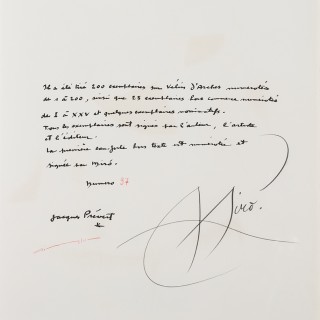 Il a été tiré 200 exemplaires sur Vélin d'Arches numérotés
de 1 à 200, ainsi que 25 exemplaires hors commerce numérotés
de I à XXV et quelques exemplaires nominatifs.
Tous les exemplaires sont signés par l'auteur, l'artiste
et l'éditeur.
La première eau-forte hors texte est numérotée et
signée par Miró.
Numero 57
Miró.
Jacques Prévert